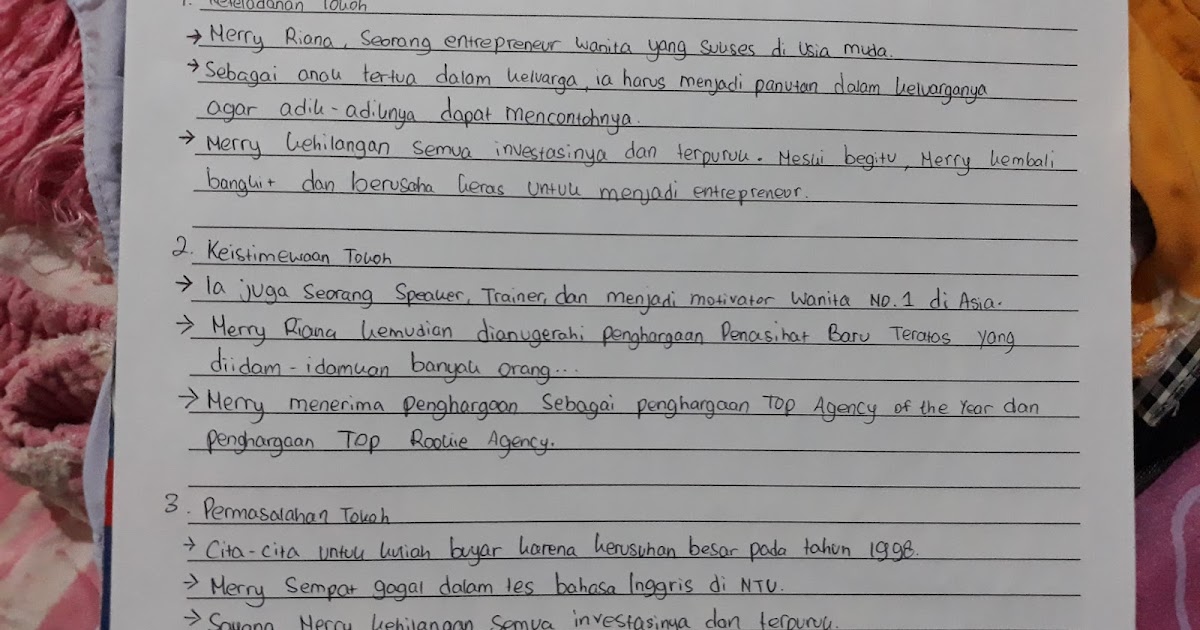 1. Keteladanan Tokoh
→ Merry Riana, Seorang entrepreneur wanita yang sukses di usia muda.
→ Sebagai anak tertua dalam keluarga, ia harus menjadi panutan dalam keluarganya
agar adik-adiknya dapat mencontohnya.
→ Merry kehilangan semua investasinya dan terpuruk. Meski begitu, Merry kembali
bangkit dan berusaha keras untuk menjadi entrepreneur.
2. Keistimewaan Tokoh
→ Ia juga Seorang Speaker, Trainer, dan menjadi motivator wanita NO.1 di Asia.
→ Merry Riana kemudian dianugerahi penghargaan Penasihat Baru Teratas yang
diidam-idamkan banyak orang...
→ Merry menerima penghargaan Sebagai penghargaan TOP Agency of the Year dan
penghargaan TOP Rookie Agency.
3. Permasalahan Tokoh
→ Cita-cita untuk kuliah buyar karena kerusuhan besar pada tahun 1998.
→ Merry Sempat gagal dalam tes bahasa Inggris di NTU.
→ Sayang Merry kehilangan semua investasinya dan terpuruk.